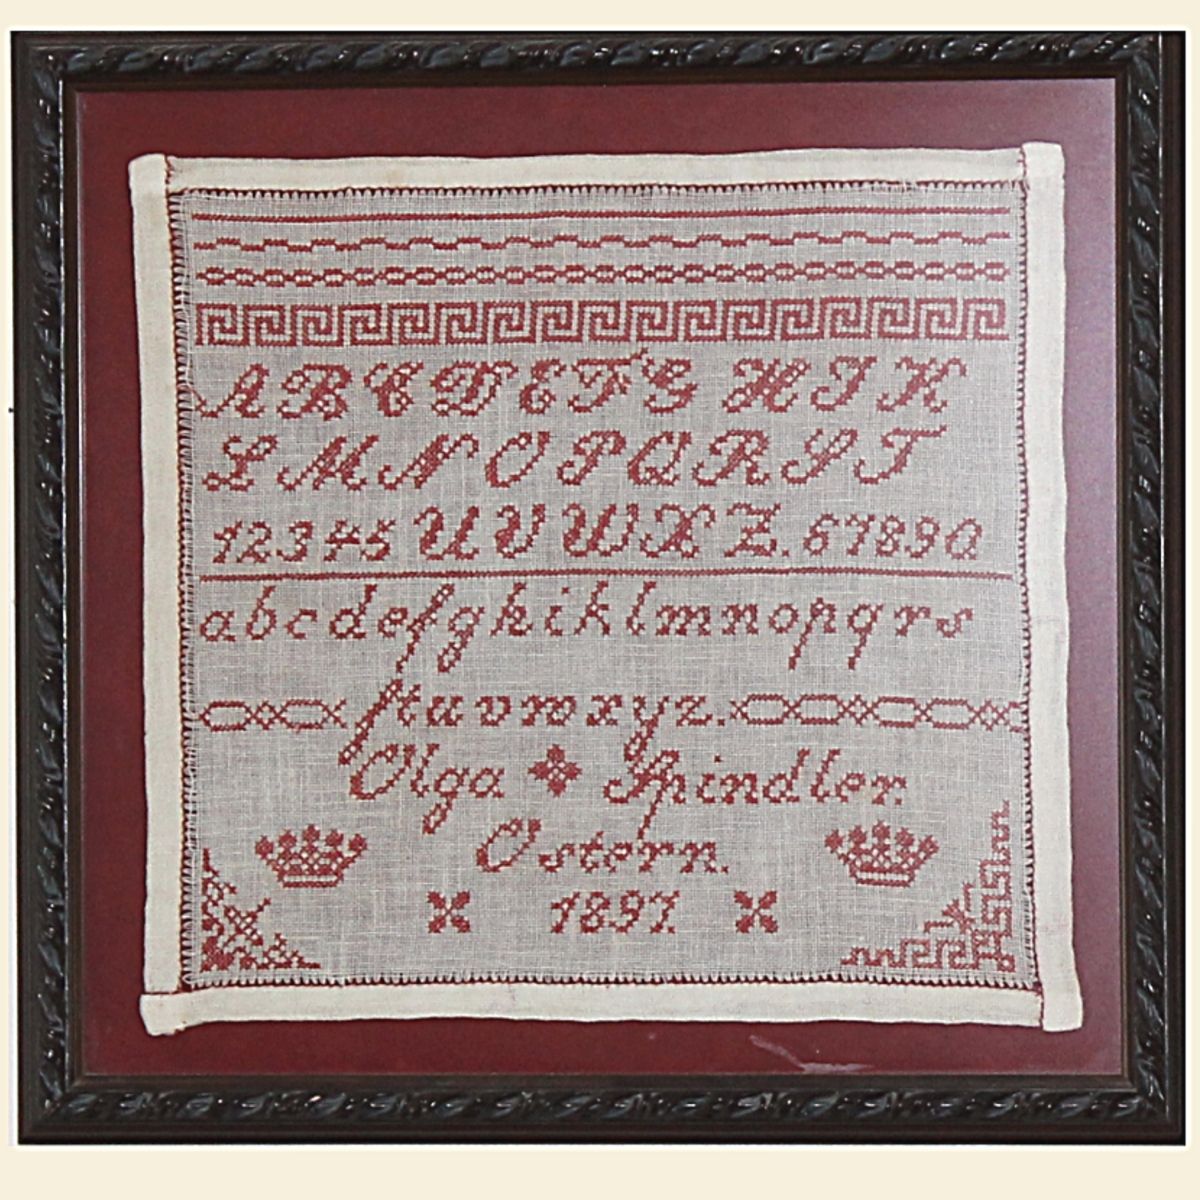 A B C D E F G H I K
L M N O P Q R S T
12345 U V W X Z. 67890
a b c d e f g h i k l m n o p q r s
ſ t u v w x y z.
Olga Spindler.
Ostern.
1897.